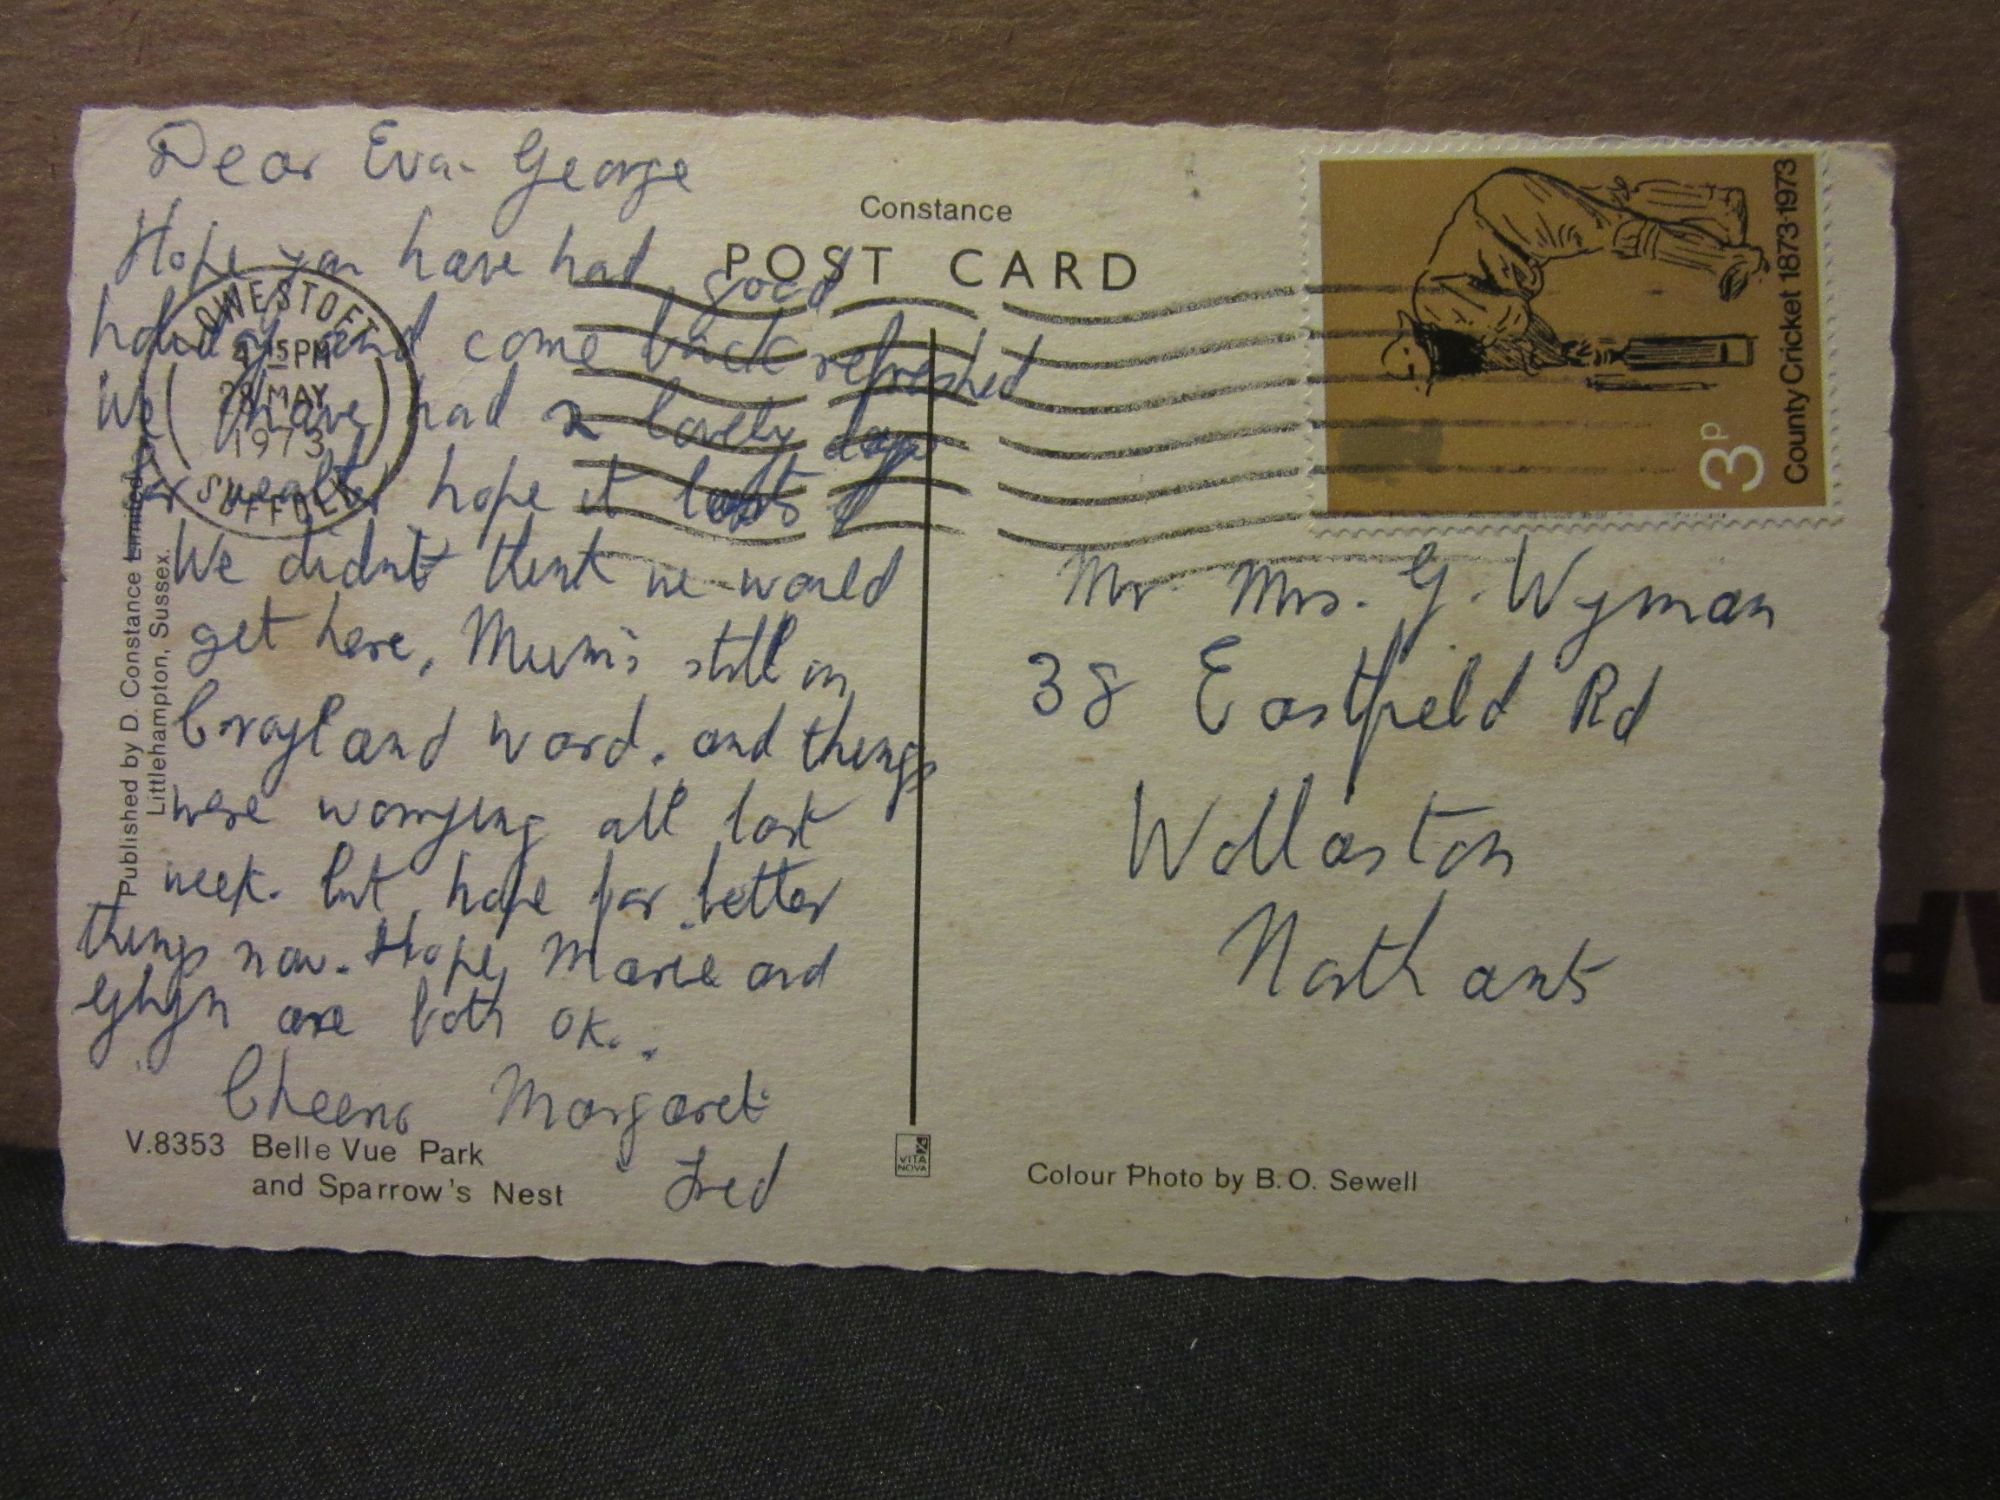 Dear Eva George
Hope you have had good
holiday and come back refreshed
We have had 2 lovely days
for weather hope it lasts
We didn't think we would
get here, Mum's still in
ward. and things
were worrying all last
week. but hope for better
things now. Hope Marie and
are both OK.
Cheerio Margaret
Fred
V.8353 Belle Vue Park
and Sparrow's Nest
Published by D. Constance Limited,
Littlehampton, Sussex.
LOWESTOFT
4 15 PM
28 MAY
1973
SUFFOLK
Constance
POST CARD
VITA
NOVA
3P
County Cricket 1873-1973
Mr Mrs. G. Wyman
38 Eastfield Rd
Wollaston
Northants
Colour Photo by B.O. Sewell